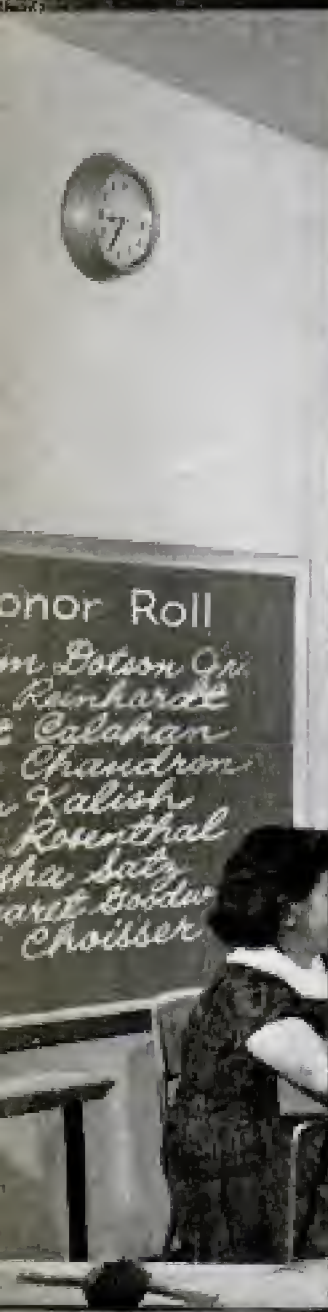 onor Roll
m Dotson Jr.
Reinhardt
Calahan
Chandron
Kalish
Rosenthal
sha Satz
aret Goodw
Choisser